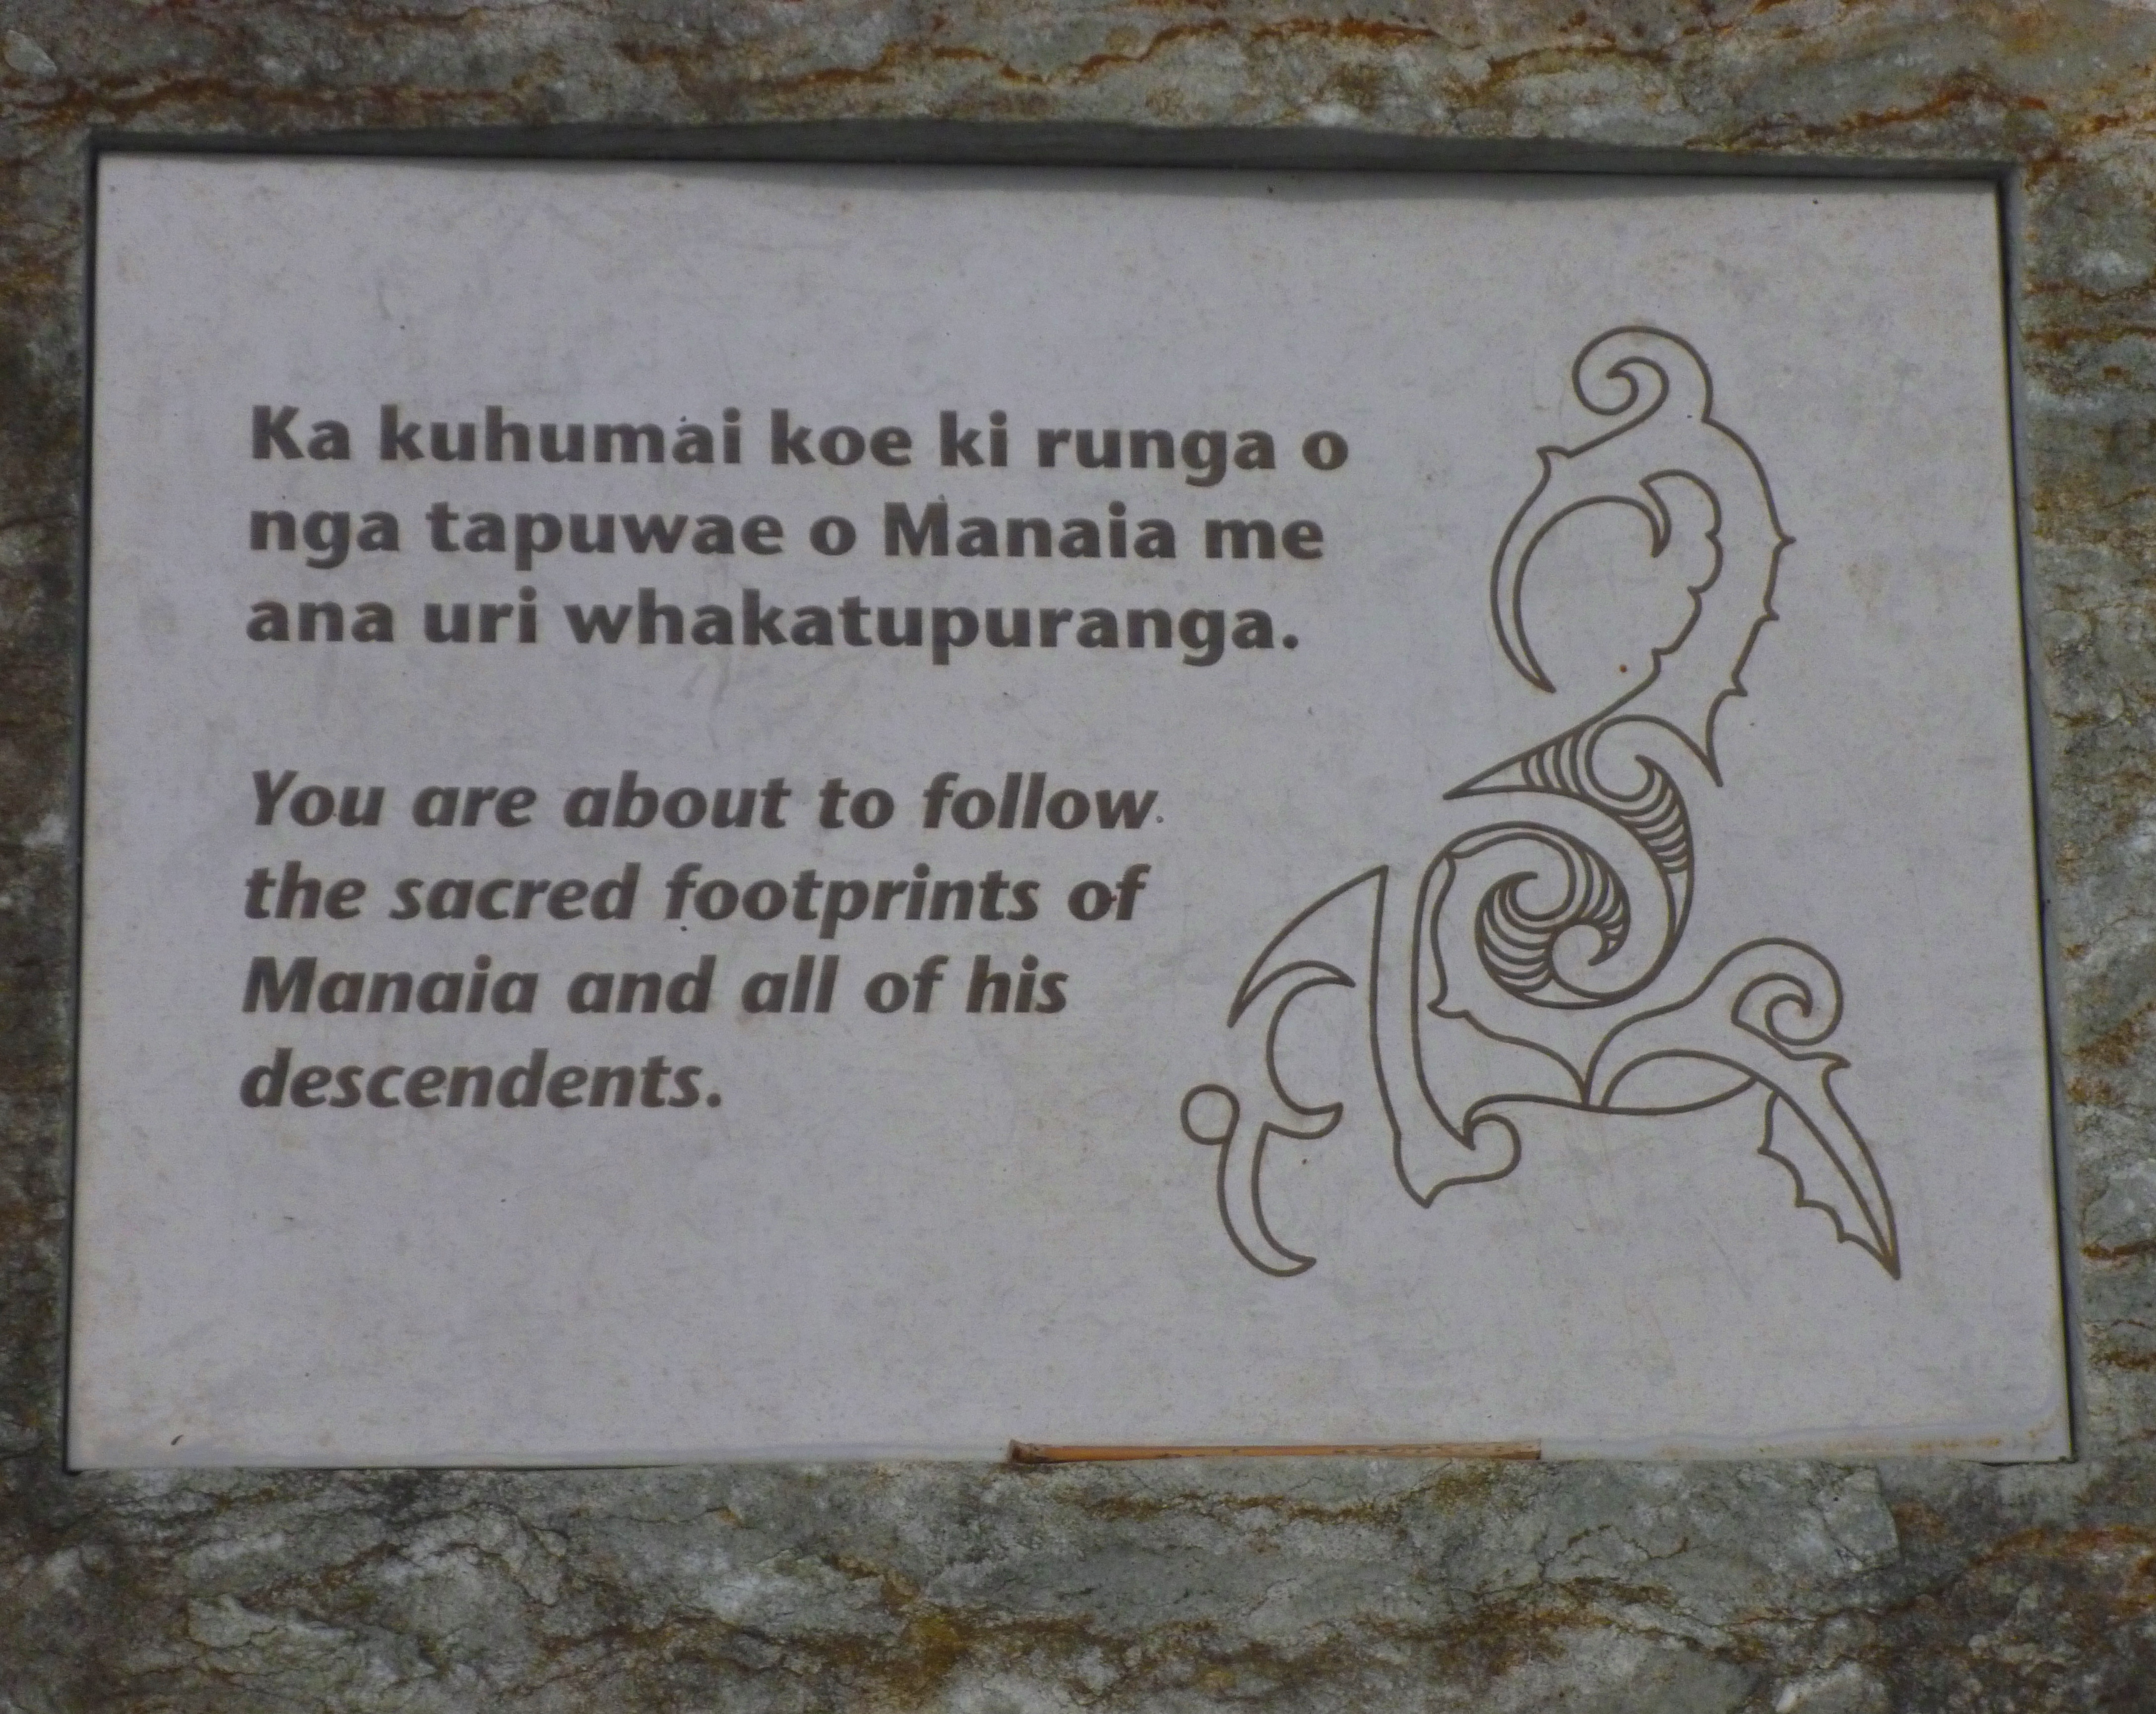 Ka kuhumai koe ki runga o
nga tapuwae o Manaia me
ana uri whakatupuranga.
You are about to follow
the sacred footprints of
Manaia and all of his
descendents.